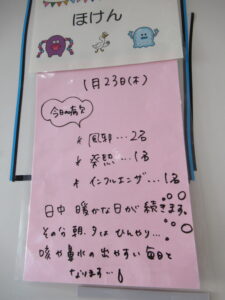 ほけん
1月23日(木)
今日の病欠
風邪...2名
発熱...1名
インフルエンザ...1名
日中 暖かな日が続きます。
その分 朝、夕はひんやり...
咳や鼻水の出やすい毎日と
なります...